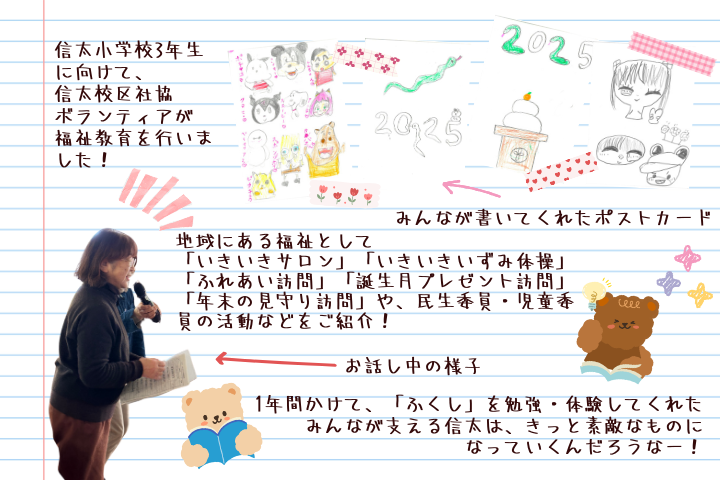 信太小学校3年生
に向けて、
信太校区社協
ボランティアが
福祉教育を行いま
した！
2025
2025
みんなが書いてくれたポストカード
地域にある福祉として
「いきいきサロン」「いきいきいずみ体操」
「ふれあい訪問」「誕生月プレゼント訪問」
「年末の見守り訪問」や、民生委員・児童委
員の活動などをご紹介！
お話し中の様子
1年間かけて、「ふくし」を勉強・体験してくれた
みんなが支える信太は、きっと素敵なものに
なっていくんだろうなー！